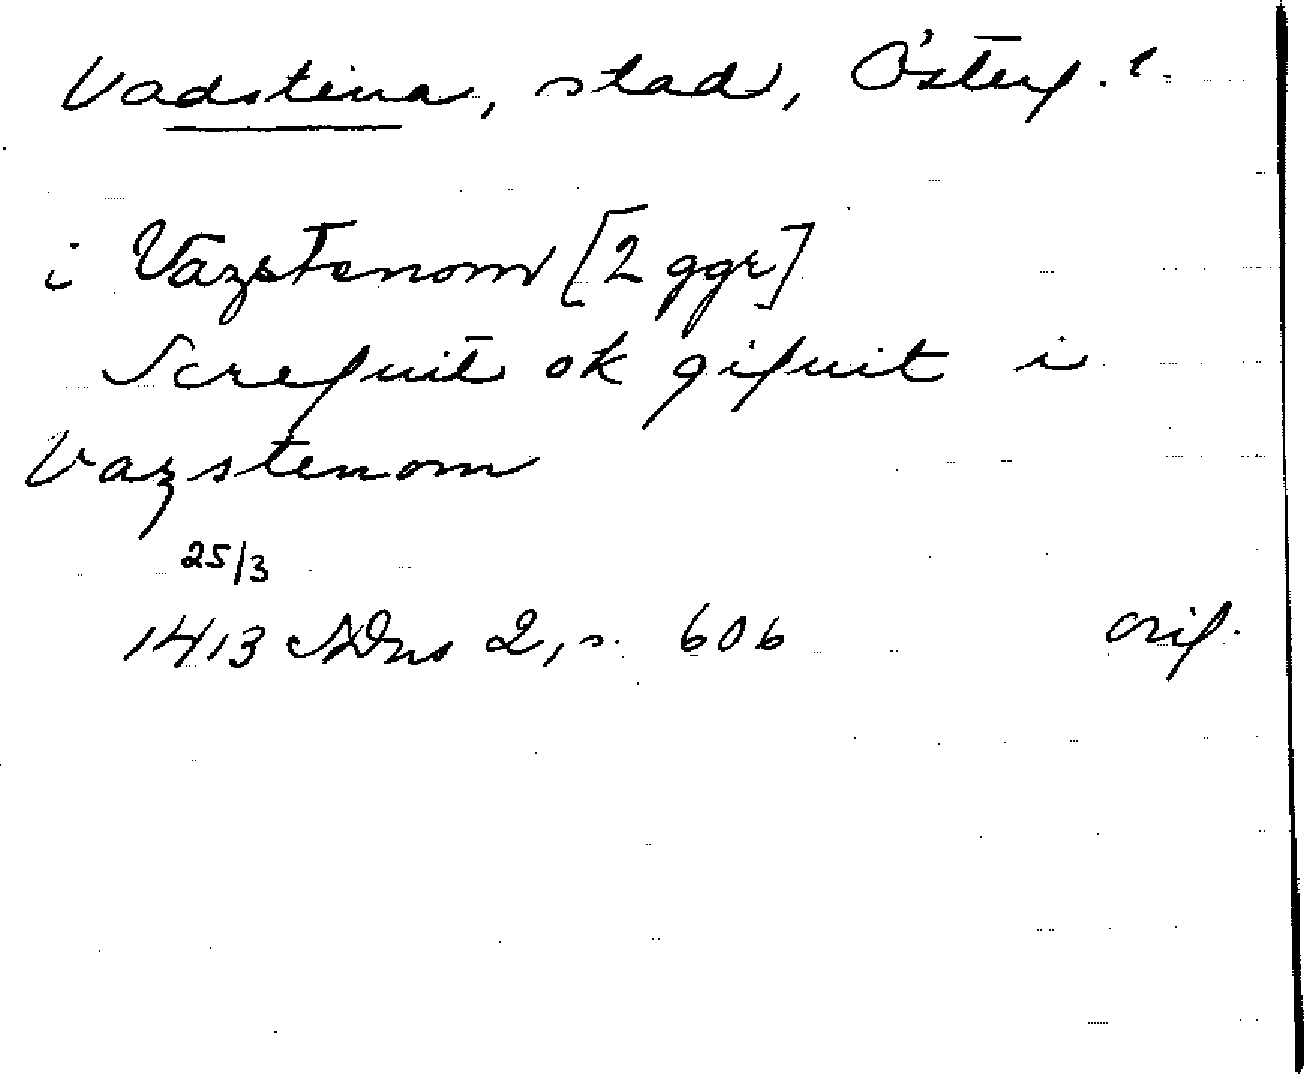 Vadstena, stad, Österg. l.
i Vazstenom [2 ggr]
Screfuit ok gifuit i
Vazstenom
25/3
1413 SDns 2, s. 606 orig.